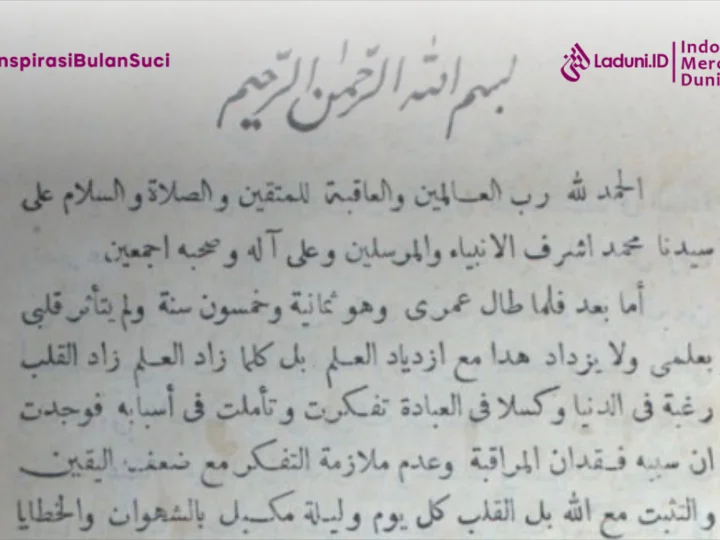 nspirasiBulanSuci
Laduni.ID
Indo
Merd
Duni
بسم الله الرّحمٰن الرّحيم
الحمد لله رب العالمين والعاقبة للمتقين والصلاة والسلام على
سيدنا محمد اشرف الانبياء والمرسلين وعلى آله وصحبه اجمعين
أما بعد فلما طال عمرى وهو ثمانية وخمسون سنة ولم يتأثر قلبى
بعلمى ولا يزداد هدا مع ازدياد العلم بل كلما زاد العلم زاد القلب
رغبة فى الدنيا وكسلا فى العبادة تفكرت وتأملت فى أسبابه فوجدت
ان سببه فقدان المراقبة وعدم ملازمة التفكر مع ضعف اليقين
والتثبت مع الله بل القلب كل يوم وليلة مكبل بالشهوان والخطايا